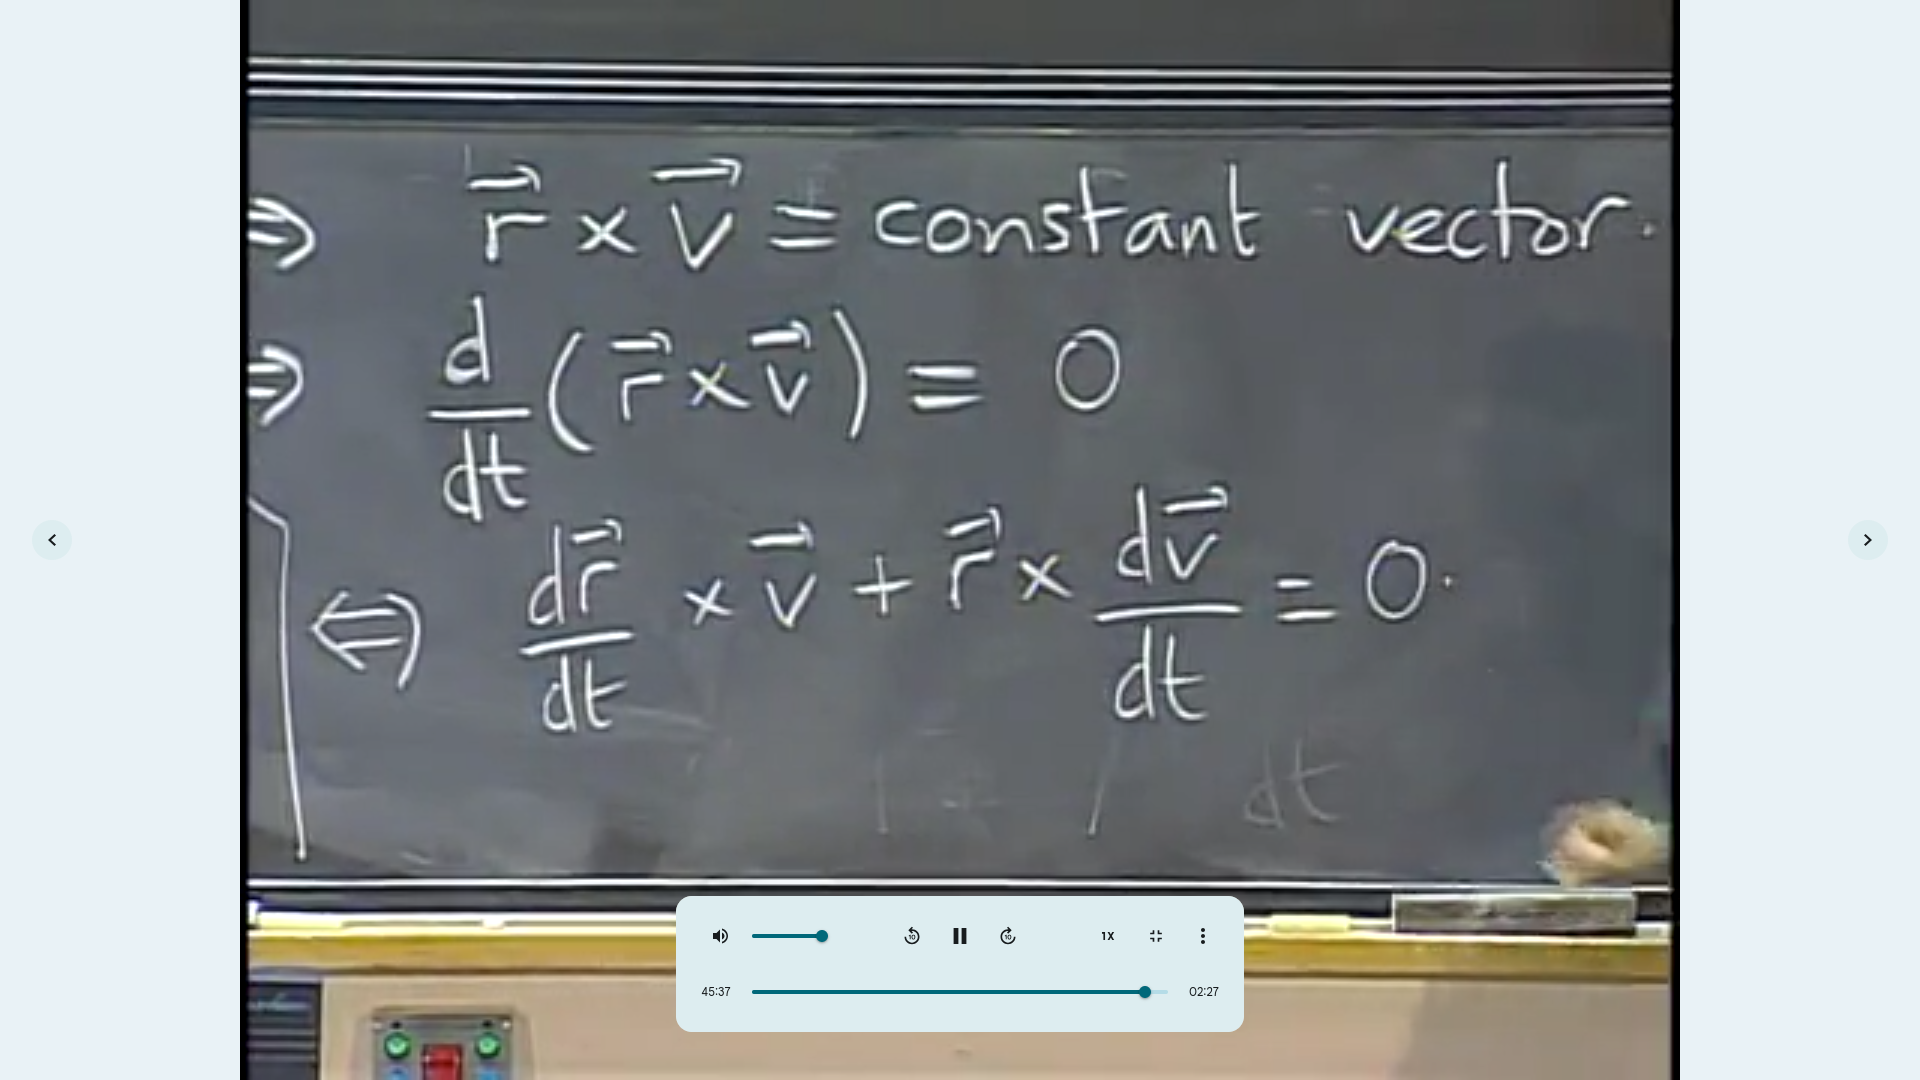 ⇒ r⃗ × v⃗ = constant vector.
⇒ d/dt (r⃗ × v⃗) = 0
⇔ dr⃗/dt × v⃗ + r⃗ × dv⃗/dt = 0.
dt
10 10 1X
45:37 02:27